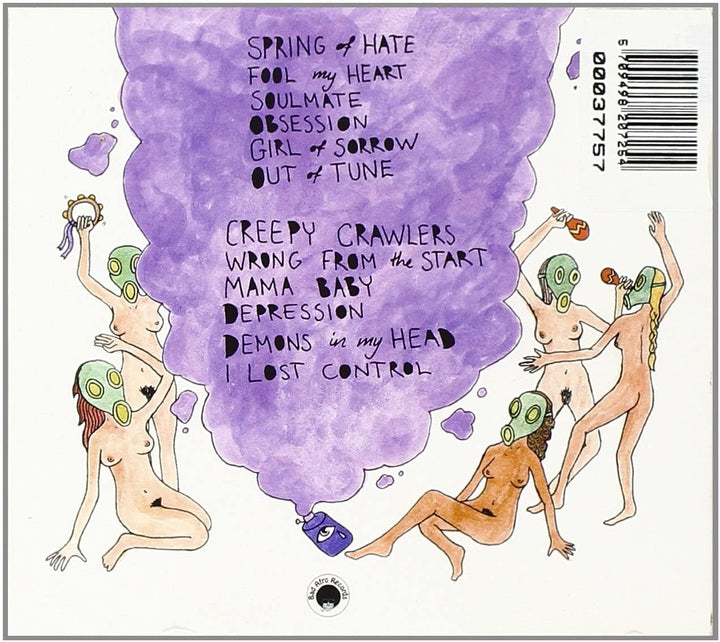 SPRING of HATE
FOOL my HEART
SOULMATE
OBSESSION
GIRL of SORROW
OUT of TUNE
CREEPY CRAWLERS
WRONG FROM the START
MAMA BABY
DEPRESSION
DEMONS in my HEAD
I LOST CONTROL
5 709498 207254
00037757
Bad Afro Records